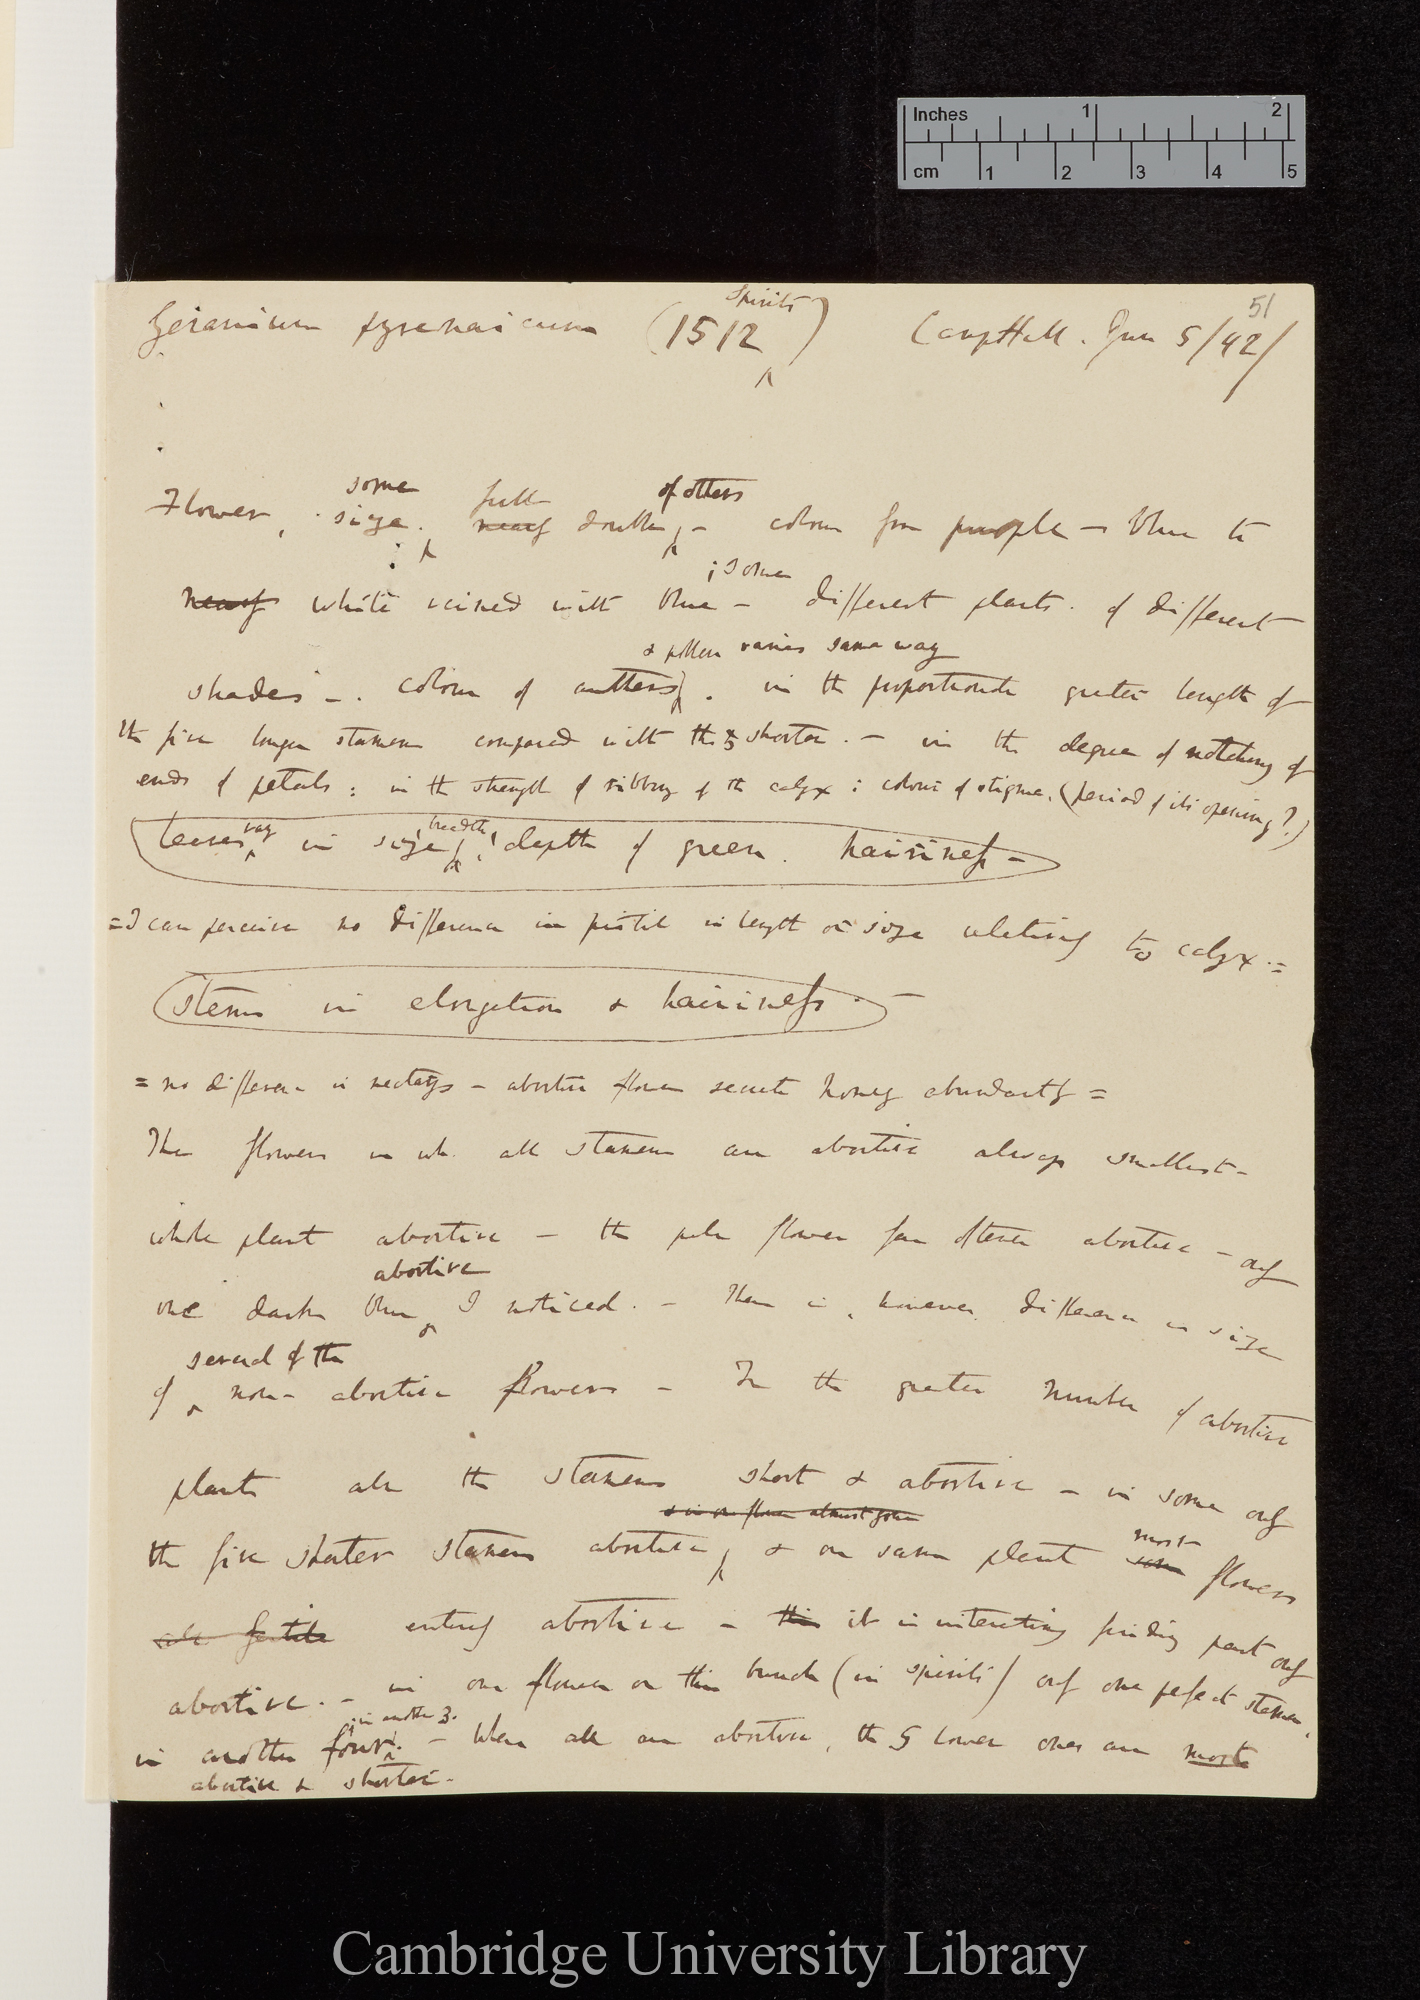 Inches 1 2
cm 1 2 3 4 5
51
Geranium pyrenaicum (1512 Spirits) CampHill. Jun 5/42/
some full of others
Flower, size. nearly double, – colour from purple – blue to
; some
nearly white veined with blue – different plants. of different
& pollen varies same way
shades –. colour of anthers. in the proportionate greater length of
the five longer stamens compared with the 5 shorter. – in the degree of notching of
ends of petals: in the strength of ribbing of the calyx: colour of stigma. (period of its opening?)
vary breadth
leaves in size, depth of green. hairiness –
= I can perceive no difference in pistil in length or size relatively to calyx. =
stems in elongation & hairiness. –
= no difference in nectarys – abortive flowers secrete honey abundantly =
The flowers in wh. all stamens are abortive always smallest –
whole plant abortive – the pale flowers far oftener abortive – only
abortive
one dark blue I noticed. – There is, however, difference in size
several of the
of non-abortive flowers – In the greater number of abortive
plants all the stamens short & abortive – in some only
& in one flower almost gone
the five shorter stamens abortive, & on same plant some flowers
most
all fertile entirely abortive – this it is interesting finding part only
abortive. – in one flower on this bunch (in spirits) only one perfect stamen,
; in another 3.
in another four. – When all are abortive, the 5 lower ones are most
abortive & shorter. –
Cambridge University Library